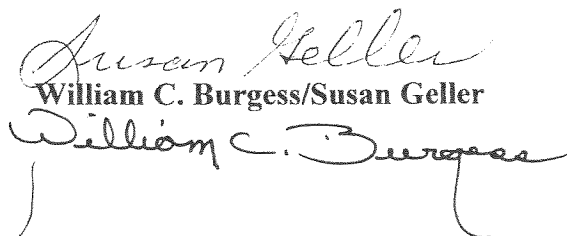 Susan Geller
William C. Burgess/Susan Geller
William C. Burgess